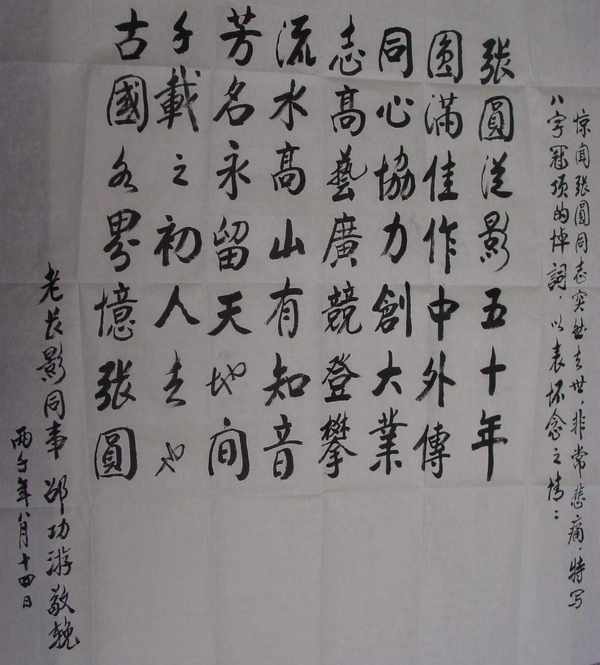 惊闻張圓同志突然去世，非常悲痛，特写
八字冠项的悼詞，以表怀念之情：
張圓從影五十年
圓滿佳作中外傳
同心協力創大業
志高藝廣競登攀
流水高山有知音
芳名永留天地间
千載之初人去也
古國各界憶張圓
老长影同事邵功游敬輓
丙子年八月十四日